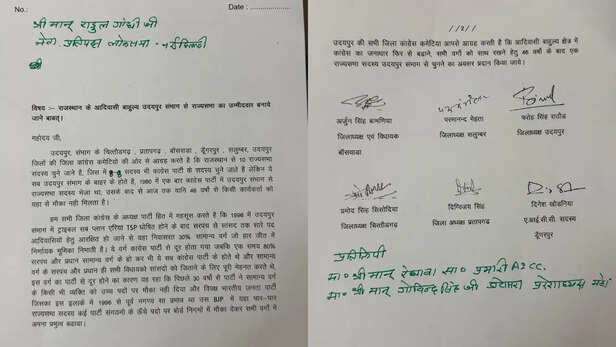 No.: Date :
श्रीमान् राहुल गांधी जी
नेता प्रतिपक्ष लोकसभा - नई दिल्ली
विषय :– राजस्थान के आदिवासी बाहुल्य उदयपुर संभाग से राज्यसभा का उम्मीदवार बनाये
जाने बाबत्।
महोदय जी,
उदयपुर, संभाग के चित्तोडगढ़ , प्रतापगढ़ , बॉसवाडा , डूँगरपुर , सलुम्बर, उदयपुर
जिलों की जिला कांग्रेस कमेटियो की ओर से आग्रह करते है कि राजस्थान से 10 राज्यसभा
सदस्य चुने जाते है, जिस में सदस्य भी कांग्रेस पार्टी के सदस्य चुने जाते हैं लेकिन ये
सब उदयपुर संभाग के बाहर के होते है, 1980 में एक बार कांग्रेस पार्टी में उदयपुर संभाग से
राज्यसभा सदस्य भेजा था, उसके बाद से आज तक यानि 46 वर्षो से किसी कार्यकर्ता को
यहा से मौका नही मिलता है।
हम सभी जिला कांग्रेस के अध्यक्ष पार्टी हित में महसूस करते है कि 1996 में उदयपुर
संभाग में ट्राइबल सब प्लान एरिया TSP घोषित होने के बाद सरपंच से सांसद तक सारे पद
आदिवासीयो हेतु आरक्षित हो जाने से यहा निवासरत 30% सामान्य वर्ग जो हार जीत में
निर्णायक भुमिका निभाती है। ये वर्ग कांग्रेस पार्टी से दूर होता गया जबकि एक समय 80%
सरपंच और प्रधान सामान्य वर्ग के हो कर भी ये सब कांग्रेस पार्टी के होते थे और सामान्य
वर्ग के सरपंच और प्रधान ही सभी विधायको सांसदो को जिताने के लिए पूरी मेहनत करते थे,
इस वर्ग का पार्टी से दूर होने का कारण यह रहा कि पिछले 30 वर्षो से पार्टी ने सामान्य वर्ग
के किसी भी व्यक्ति को उच्च पदों पर मौका नही दिया और विपक्ष भारतीय जनता पार्टी
जिसका इस इलाके में 1996 से पूर्व नगण्य सा प्रभाव था उस BJP में यहा चार–चार
राज्यसभा सदस्य कई पार्टी संगठनो के ऊँचे पदो पर बोर्ड निगमों में मौका देकर सभी वर्गो में
अपना प्रमुत्व बढाया।
//2//
उदयपुर की सभी जिला कांग्रेस कमेटिया आपसे आग्रह करती है कि आदिवासी बाहुल्य क्षेत्र में
कांग्रेस का जनाधार फिर से बढाने, सभी वर्गो को साथ रखने हेतु 46 वर्षो के बाद एक
राज्यसभा सदस्य उदयपुर संभाग से चुनने का अवसर प्रदान किया जाये।
अर्जुन सिंह बामणिया परमानन्द मेहता फतेह सिंह राठौड
जिलाध्यक्ष एवं विधायक जिलाध्यक्ष सलुम्बर जिलाध्यक्ष उदयपुर
बॉसवाडा
प्रमोद सिंह सिसोदिया दिग्विजय सिंह दिनेश खोडनिया
जिलाध्यक्ष चित्तोडगढ़ जिला अध्यक्ष प्रतापगढ़ ए.आई.सी.सी सदस्य
डूँगरपुर
प्रतिलिपी
मा० श्रीमान् रंधावा सा० प्रभारी AICC.
मा० श्रीमान् गोविन्द सिंह जी डोटासरा प्रदेशाध्यक्ष महो.